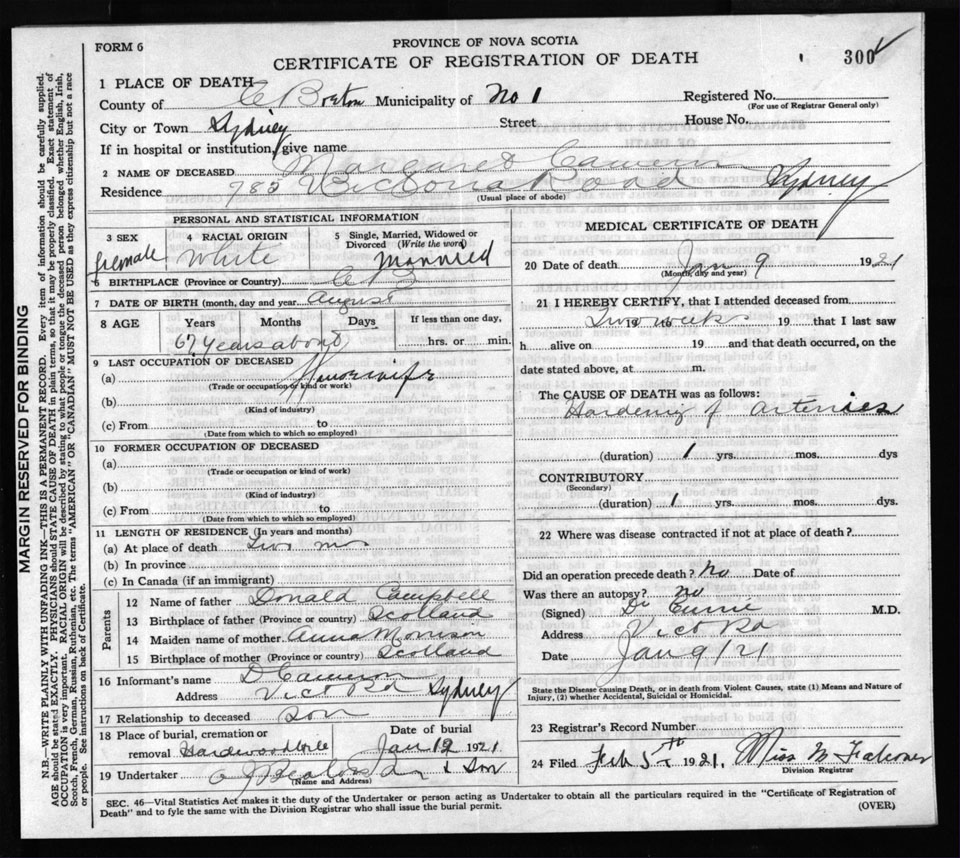 FORM 6
PROVINCE OF NOVA SCOTIA
CERTIFICATE OF REGISTRATION OF DEATH
300
1 PLACE OF DEATH
County of C Breton Municipality of No 1
Registered No.
(For use of Registrar General only)
City or Town Sydney Street House No.
If in hospital or institution, give name
2 NAME OF DECEASED Margaret Cameron
Residence 785 Victoria Road Sydney
(Usual place of abode)
PERSONAL AND STATISTICAL INFORMATION
3 SEX female
4 RACIAL ORIGIN White
5 Single, Married, Widowed or Divorced (Write the word) Married
6 BIRTHPLACE (Province or Country) C B
7 DATE OF BIRTH (month, day and year) August
8 AGE Years Months Days
If less than one day,
hrs. or min.
67 years about
9 LAST OCCUPATION OF DECEASED
(a) Housewife
(Trade or occupation or kind of work)
(b)
(Kind of industry)
(c) From to
(Date from which to which so employed)
10 FORMER OCCUPATION OF DECEASED
(a)
(Trade or occupation or kind of work)
(b)
(Kind of industry)
(c) From to
(Date from which to which so employed)
11 LENGTH OF RESIDENCE (In years and months)
(a) At place of death Two
(b) In province
(c) In Canada (if an immigrant)
Parents
12 Name of father Donald Campbell
13 Birthplace of father (Province or country) Scotland
14 Maiden name of mother Anna Morrison
15 Birthplace of mother (Province or country) Scotland
16 Informant's name D Cameron
Address Vict Rd Sydney
17 Relationship to deceased son
18 Place of burial, cremation or removal Hardwood Hill
Date of burial Jan 12 1921
19 Undertaker & Son
(Name and Address)
MEDICAL CERTIFICATE OF DEATH
20 Date of death Jan 9 1921
(Month, day and year)
21 I HEREBY CERTIFY, that I attended deceased from
Two weeks 19 19 that I last saw
h alive on 19 and that death occurred, on the
date stated above, at m.
The CAUSE OF DEATH was as follows:
Hardening of arteries
(duration) 1 yrs. mos. dys
CONTRIBUTORY
(Secondary)
(duration) 1 yrs. mos. dys.
22 Where was disease contracted if not at place of death?
Did an operation precede death? No Date of
Was there an autopsy? No
(Signed) Dr Currie M.D.
Address Vict Rd
Date Jan 9/21
State the Disease causing Death, or in death from Violent Causes, state (1) Means and Nature of
Injury, (2) whether Accidental, Suicidal or Homicidal.
23 Registrar's Record Number
24 Filed Feb 5th 1921. Miss M Falconer
Division Registrar
SEC. 46—Vital Statistics Act makes it the duty of the Undertaker or person acting as Undertaker to obtain all the particulars required in the "Certificate of Registration of
Death" and to fyle the same with the Division Registrar who shall issue the burial permit.
(OVER)
MARGIN RESERVED FOR BINDING
N.B.—WRITE PLAINLY WITH UNFADING INK—THIS IS A PERMANENT RECORD. Every item of information should be carefully supplied.
AGE should be stated EXACTLY. PHYSICIANS should STATE CAUSE OF DEATH in plain terms, so that it may be properly classified. Exact statement of
OCCUPATION is very important. RACIAL ORIGIN will be described by stating to what people or tongue the deceased person belonged whether English, Irish,
Scotch, French, German, Russian, Ruthenian, etc. The terms "AMERICAN" OR "CANADIAN" MUST NOT BE USED as they express citizenship but not a race
or people. See instructions on back of Certificate.